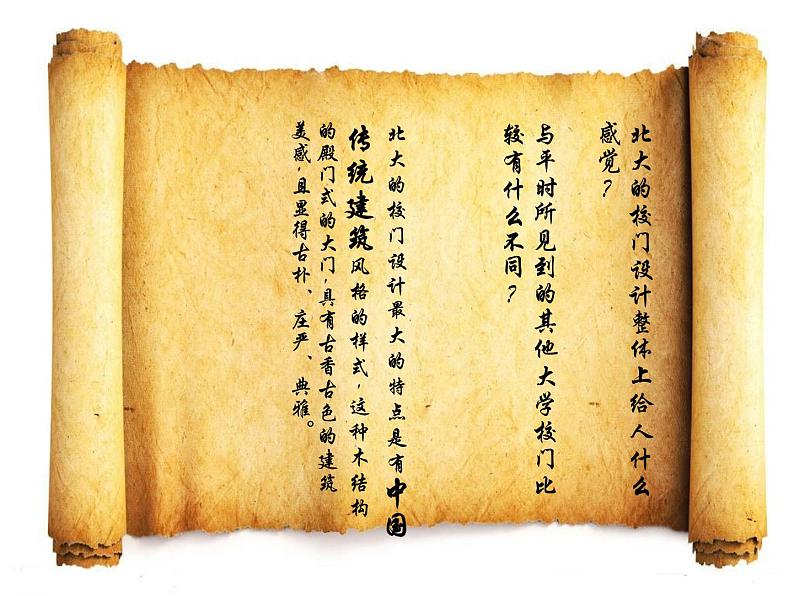 北大的校门设计整体上给人什么
感觉？
与平时所见到的其他大学校门比
较有什么不同？
北大的校门设计最大的特点是有中国
传统建筑风格的样式，这种木结构
的殿门式的大门，具有古香古色的建筑
美感，且显得古朴、庄严、典雅。